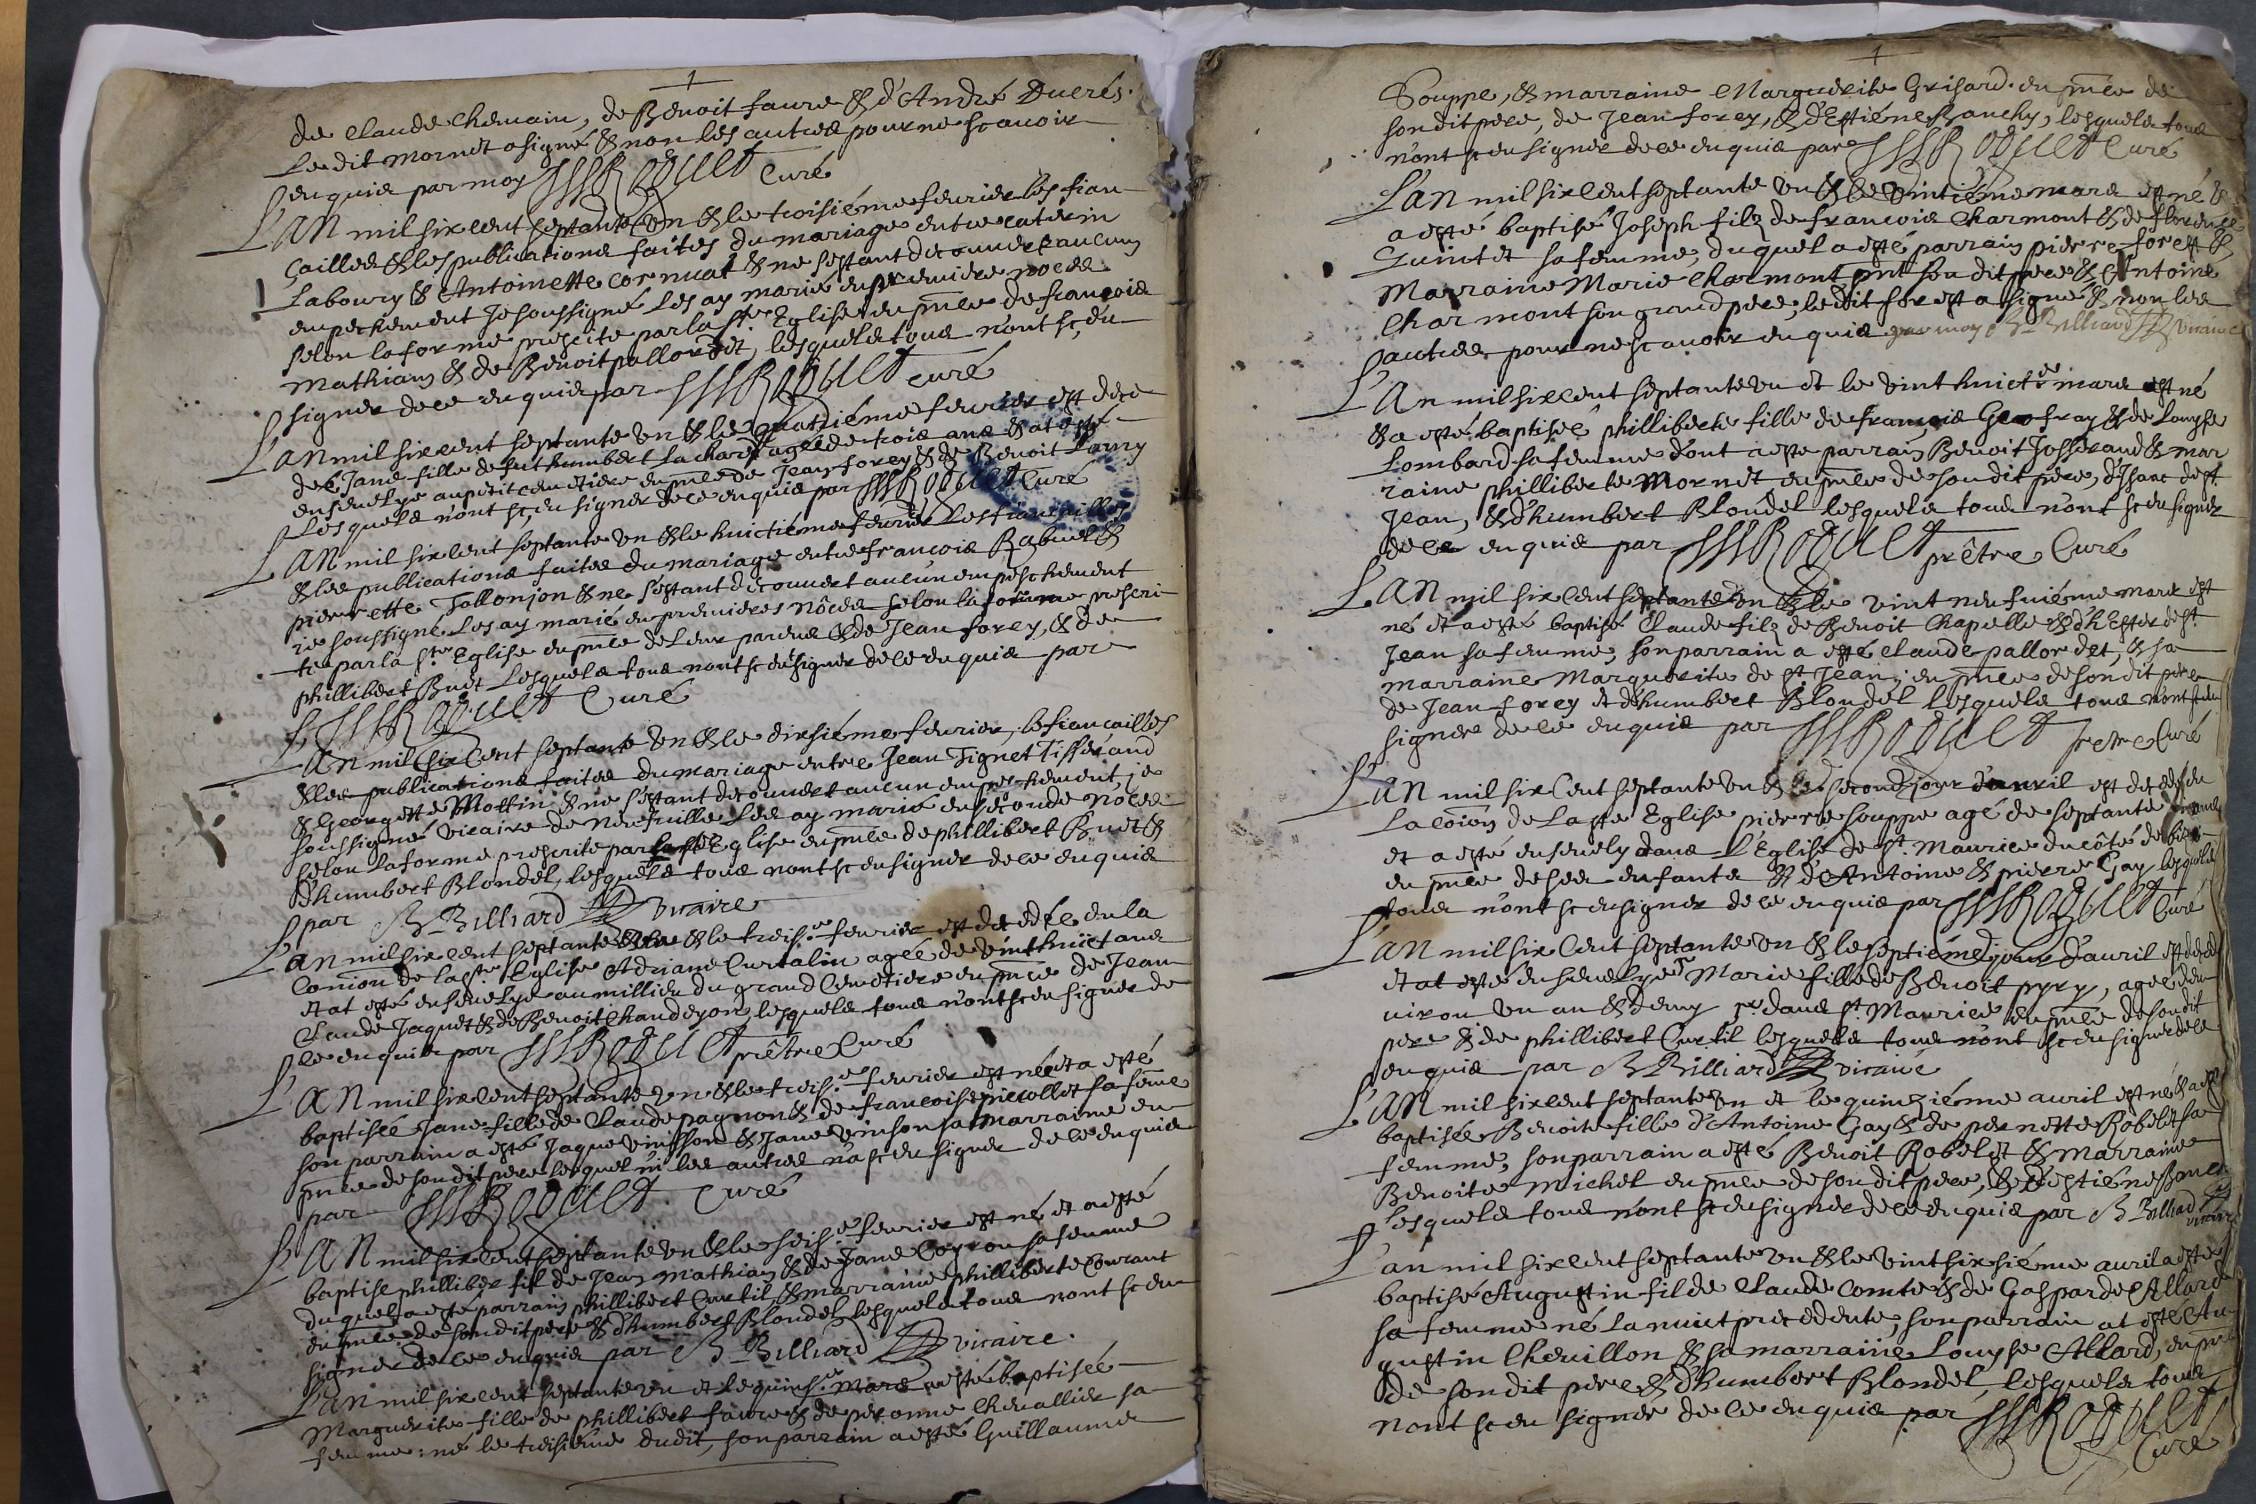 de Claude Chervain, de Benoit faure & d'André Ducrés.
Ledit Mornet a signé & non les autres pour ne scavoir
enquis par moy Roguet Curé
L'AN mil six cent septante un & le troisiéme feurier les fian
cailles & les publications faites du mariage entre caterin
Laboury & Antoinette cornuat & ne sestant decouuert aucun
empechement Je soussigné Les ay mariés en premiere noces
selon la forme prescite par la ste Eglise en pnce de francois
Mathian & de Benoit pallordet, lesquels tous n'ont sceu
signer de ce enquis par Roguet curé
L'an mil six cent septante un & le quatriéme feurier est dece
deé Jane fille de fut humbert Lachard agée de trois ans & at esté
enseuelye au petit cemetiere en pnce de Jean forey & de Benoit Lamy
Lesquels n'ont sceu signer de ce enquis par Roguet Curé
L'AN mil six cent septante un & le huictiéme feurier Les fiancailles
& les publications faites du mariage entre francois Rabuel &
pierrette Tollonjon & ne sestant decouuert aucun empeschement
ie soussigné Les ay marié en premieres nôces selon la forme prescri
te par la ste Eglise en pnce de Leur parens & de Jean forey, & de
phillibert Buet Lesquels tous n'ont sceu signer de ce enquis par
Roguet Curé
L'An mil six Cent septante un & le dixsiéme feurier, les fiancailles
& les publications faites du mariage entre Jean Tignet Tisserand
& Georgette Mottin & ne sestant decouuert aucun empeschement, je
soussigné vicaire de Neufuille Les ay marié en seconde nôces
selon la forme prescrite par la ste Eglise en pnce de phillibert Buet &
d'humbert Blondel, lesquels tous n'ont sceu signer de ce enquis
par B. Billiard vicaire
L'an mil six cent septante un & le treis.e feurier est decedée en la
Comion de la ste Eglise Adriane Curtalin agée de vint huict ans
et at esté enseuelye au millieu du grand Cemetiere en pnce de Jean
Claude Jaquet & de Benoit Chandeyon, lesquels tous n'ont sceu signer de
ce enquis par Roguet prêtre Curé
L'AN mil six cent septante un & le treis.e feurier est née et a esté
baptisée Jane fille de Claude pagnon & de francoise piccollet sa féme
son parrain a esté Jaque Vinsson & Jane Vinson sa marraine en
pnce de son dit pere lesquel ni les autres n'a sceu signer de ce enquis
par Roguet Curé
L'AN mil six cent septante un & le seis.e feurier est né et a esté
baptisé phillibert fil de Jean Mathian & de Jane Coyron sa femme
duquel a esté parrain phillibert Curtil & marraine phillberte Courant
en pnce de son dit pere & d'humbert Blondel, lesquels tous n'ont sceu
signer de ce enquis par B. Billiard vicaire.
L'an mil six cent septante un et le quins.e Mars a esté baptisée
Marguerite fille de phillibert faure & de peronne Cheuallier sa
femme: né le treisiéme dudit, son parrain a esté Guillaume
Souppe, & marraine Marguerite Grisard. en pnce de
son dit pere, de Jean forey, & d'Estiéne Banchy, lesquels tous
n'ont sceu signer de ce enquis par Roguet Curé
L'an mil six cent septante un & le vintiéme mars est né &
a esté baptisé Joseph filz de francois Charmont & de florence
Guintet sa femme, duquel a esté parrain pierre forest &
Marraine Marie Charmont pnt son dit pere & Antoine
Charmont son grand pere; le dit forest a signé & non les
autres pour ne scauoir enquis par moy B. Billiard vicaire
L'An mil six cent septante un et le vint huict.e mars est né
& a esté baptisée phillberte fille de francois Geofray & de Louyse
Lombard sa femme dont a esté parrain Benoit Josserand & mar
raine phillberte Mornet en pnce de son dit pere, d'Isaac de st.
Jean, & d'humbert Blondel lesquels tous n'ont sceu signer
de ce enquis par Roguet prêtre Curé
L'AN mil six cent septante un & le vint neufuiéme mars est
né et a esté baptisé Claude filz de Benoit Chapelle & d'hester de st.
Jean sa femme, son parrain a esté Claude pallordet, & sa
marraine Marguerite de st. Jean, en pnce de son dit pere
de Jean forey et d'humbert Blondel lesquels tous n'ont sceu
signer de ce enquis par Roguet prêtre Curé
L'AN mil six Cent septante un & le second jour d'auril est decedé en
La coïon de La ste Eglise pierre souppe agé de septante
et a esté enseuely dans L'Eglise de st. Maurice du côté de
en pnce de ses enfants & d'Antoine & pierre Gay lesquels
tous n'ont sceu signer de ce enquis par Roguet Curé
L'an mil six Cent septante un & le septiéme jour d'auril est decedé
et at esté enseuelye Marie fille de Benoit pyry, agée d'en
uiron un an & demy dans st. Maurice en pnce de son dit
pere & de phillibert Curtil lesquels tous n'ont sceu signer de ce
enquis par B. Billiard vicaire
L'AN mil six cent septante un et le quinziéme auril est né & a esté
baptisée Benoite fille d'Antoine Gay & de pernette Robelet sa
femme, son parrain a esté Benoit Robelet & marraine
Benoite Michel en pnce de son dit pere, & d'Estiéne
lesquels tous n'ont sceu signer de ce enquis par B. Billiard vicaire
L'an mil six cent septante un & le vint sixsiéme auril a esté
baptisé Augustin fil de Claude Comte & de Gasparde Allard
sa femme né la nuict precedente son parrain at esté Au-
gustin Cheuillon & sa marraine Louyse Allard, en pnce
de son dit pere & d'humbert Blondel, lesquels tous
n'ont sceu signer de ce enquis par Roguet
Curé